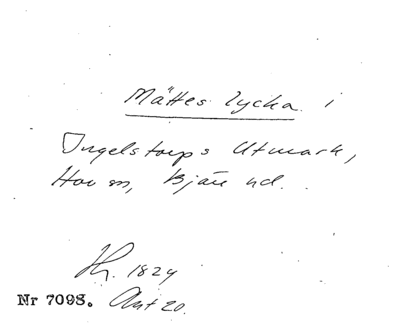 Mättes lycka i
Ingelstorps Utmark,
Hov sn, Bjäre hd.
1829
Nr 7098. Akt 20.